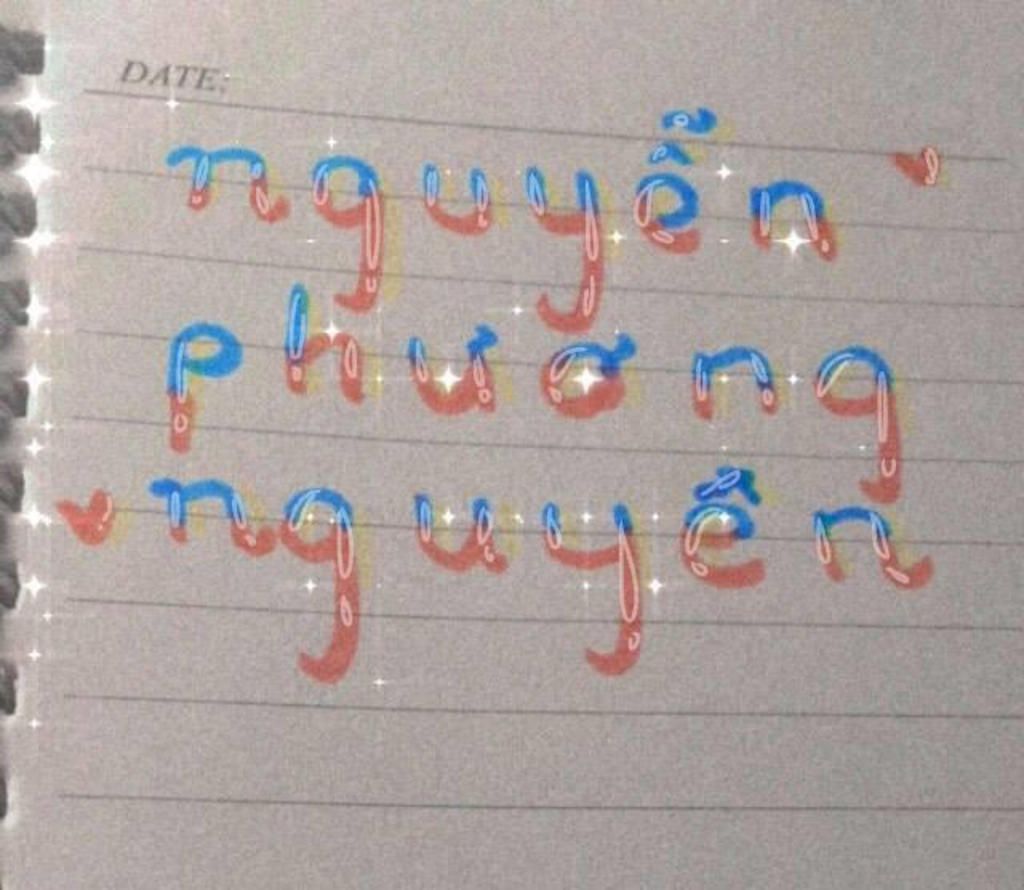 DATE:
nguyễn
phương
nguyên